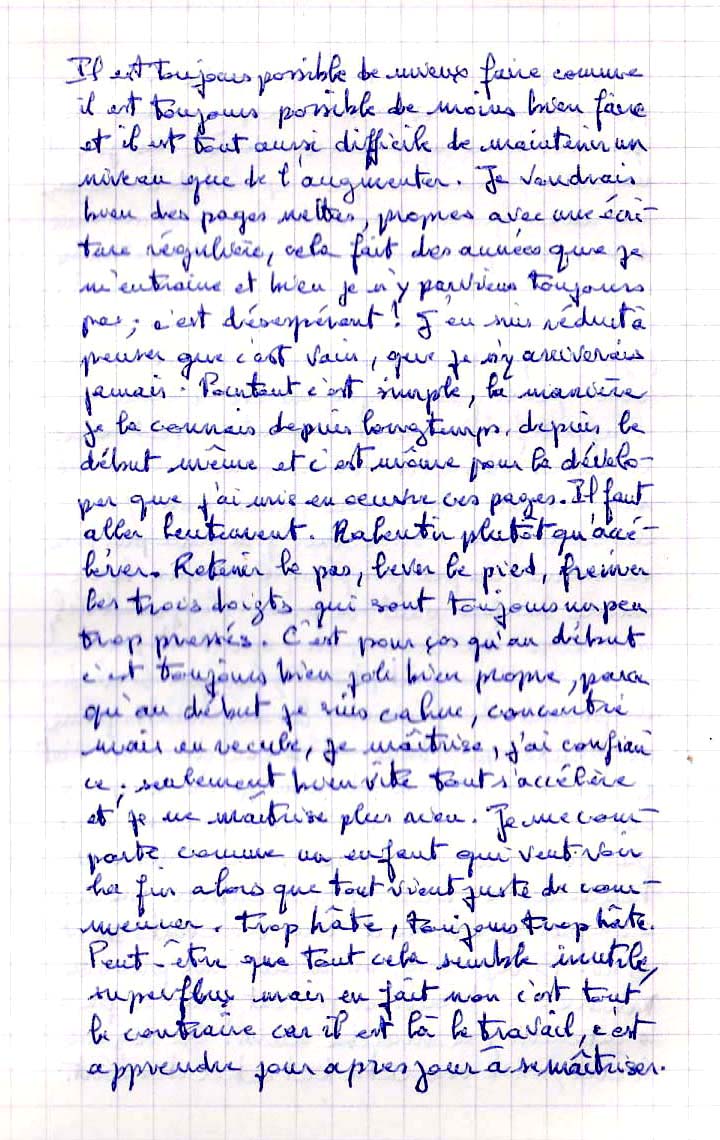 Il est toujours possible de mieux faire comme
il est toujours possible de moins bien faire
et il est tout aussi difficile de maintenir un
niveau que de l'augmenter. Je voudrais
bien des pages nettes, propres avec une écri-
ture régulière, cela fait des années que je
m'entraine et bien je n'y parviens toujours
pas; c'est désespérant! J'en suis réduit à
penser que c'est vain, que je n'y arriverais
jamais. Pourtant c'est simple, la manière
je la connais depuis longtemps, depuis le
début même et c'est même pour la dévelo-
per que j'ai mis en oeuvre ces pages. Il faut
aller lentement. Ralentir plutôt qu'accé-
lérer. Retenir le pas, lever le pied, freiner
les trois doigts qui sont toujours un peu
trop pressés. C'est pour ça qu'au début
c'est toujours bien joli bien propre, parce
qu'au début je suis calme, concentré
mais en recule, je maîtrise, j'ai confian
ce; seulement bien vite tout s'accélère
et je ne maîtrise plus rien. Je me com-
porte comme un enfant qui veut voir
la fin alors que tout vient juste de com-
mencer. Trop hâte, toujours trop hâte.
Peut-être que tout cela semble inutile,
superflux mais en fait non c'est tout
le contraire car il est là le travail, c'est
apprendre jour apres jour à se maîtriser.